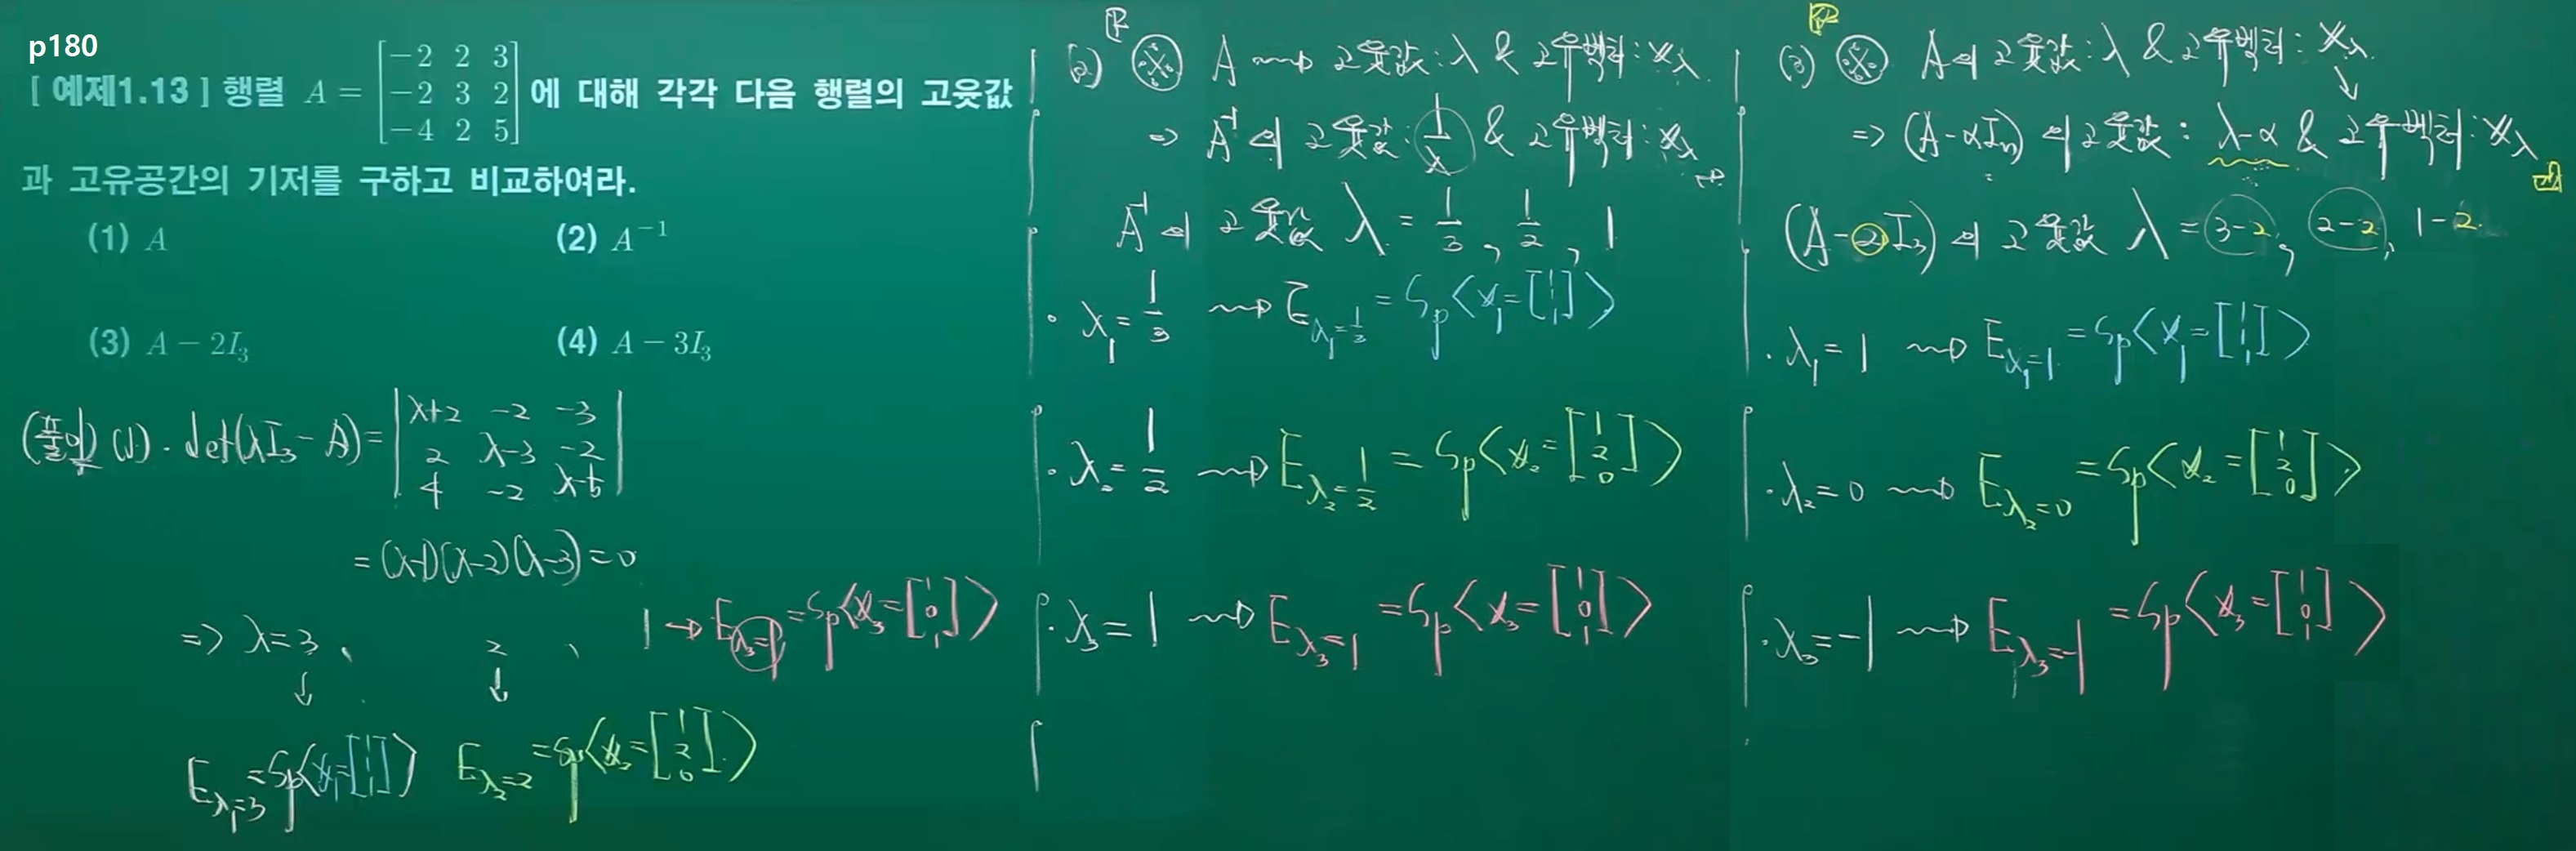 p180
[ 예제1.13 ] 행렬 A = [−2 2 3; −2 3 2; −4 2 5] 에 대해 각각 다음 행렬의 고윳값
과 고유공간의 기저를 구하고 비교하여라.
(1) A (2) A⁻¹
(3) A − 2I₃ (4) A − 3I₃
(풀이) (1) · det(λI₃ − A) = | λ+2 −2 −3; 2 λ−3 −2; 4 −2 λ−5 |
= (λ−1)(λ−2)(λ−3) = 0
⇒ λ = 3 , 2 , 1 → E_{λ₃=1} = Sp⟨x₃ = [1; 0; 1]⟩
↓ ↓
E_{λ₁=3} = Sp⟨x₁ = [1; 1; 1]⟩ E_{λ₂=2} = Sp⟨x₂ = [1; 2; 0]⟩
(2) ※ A ⇝ 고윳값 : λ & 고유벡터 : x_λ
⇒ A⁻¹의 고윳값 : 1/λ & 고유벡터 : x_λ
A⁻¹의 고윳값 λ = 1/3 , 1/2 , 1
· λ₁ = 1/3 ⇝ E_{λ₁=1/3} = Sp⟨x₁ = [1; 1; 1]⟩
· λ₂ = 1/2 ⇝ E_{λ₂=1/2} = Sp⟨x₂ = [1; 2; 0]⟩
· λ₃ = 1 ⇝ E_{λ₃=1} = Sp⟨x₃ = [1; 0; 1]⟩
(3) ※ A의 고윳값 : λ & 고유벡터 : x_λ
⇒ (A − αIₙ)의 고윳값 : λ−α & 고유벡터 : x_λ
(A − 2I₃)의 고윳값 λ = 3−2 , 2−2 , 1−2
· λ₁ = 1 ⇝ E_{λ₁=1} = Sp⟨x₁ = [1; 1; 1]⟩
· λ₂ = 0 ⇝ E_{λ₂=0} = Sp⟨x₂ = [1; 2; 0]⟩
· λ₃ = −1 ⇝ E_{λ₃=−1} = Sp⟨x₃ = [1; 0; 1]⟩